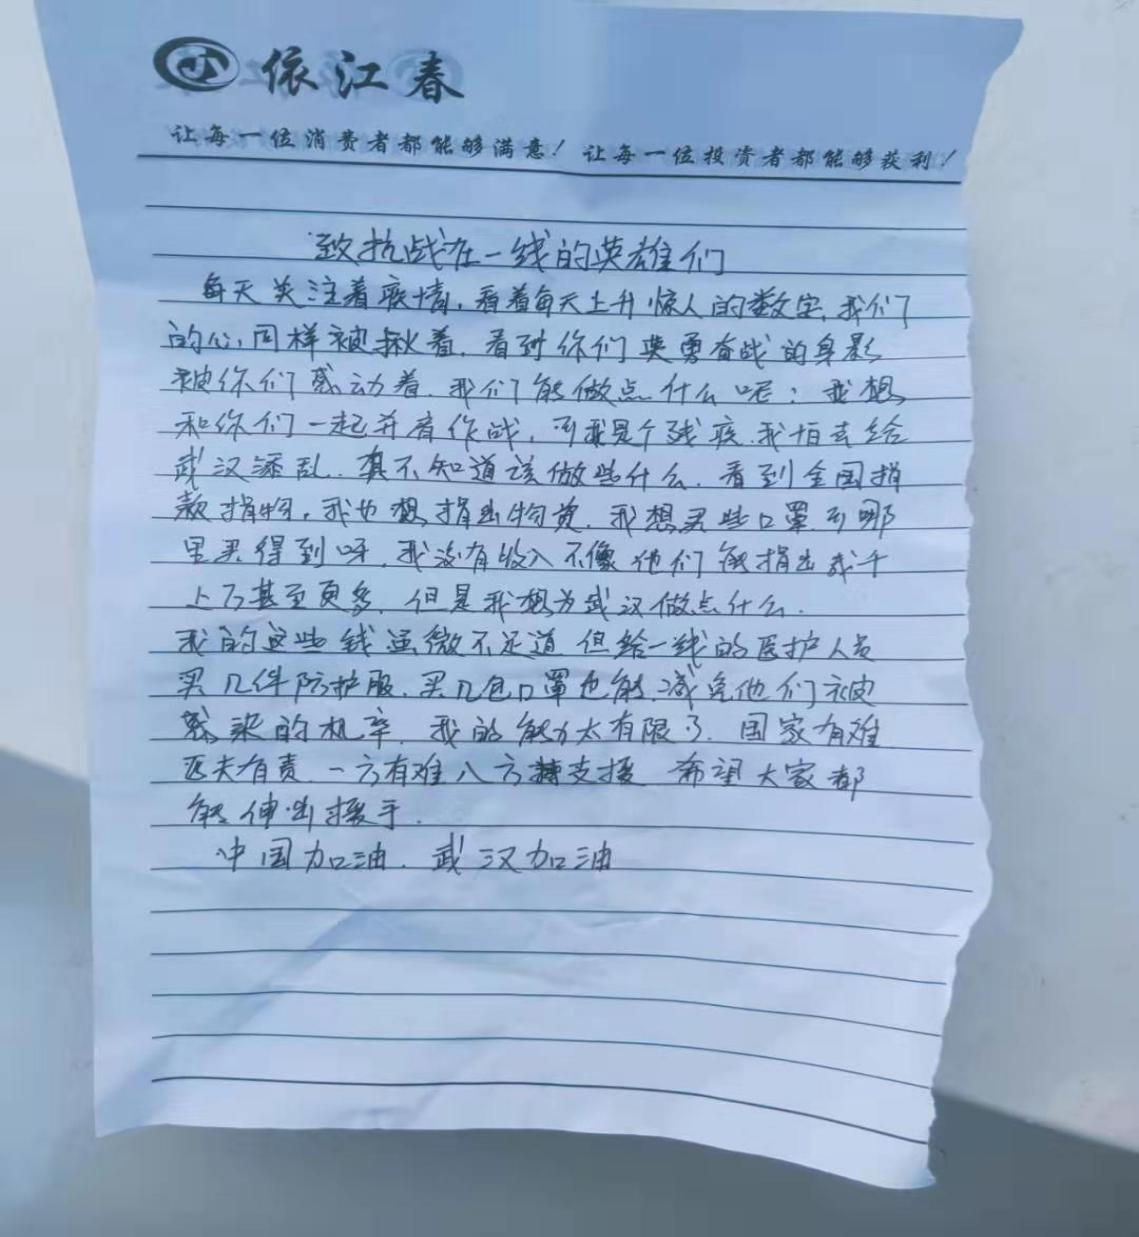 依江春
让每一位消费者都能够满意! 让每一位投资者都能够获利!
致抗战在一线的英雄们
每天关注着疫情,看着每天上升惊人的数字,我们
的心同样被揪着,看到你们英勇奋战的身影
被你们感动着,我们能做点什么呢;我想
和你们一起并肩作战,可我是个残疾,我怕去给
武汉添乱,真不知道该做些什么,看到全国捐
款捐物,我也想捐出物资,我想买些口罩可哪
里买得到呀,我没有收入不像他们能捐出几千
上万甚至更多,但是我想为武汉做点什么.
我的这些钱虽微不足道 但给一线的医护人员
买几件防护服,买几包口罩也能减免他们被
感染的机率,我的能力太有限了,国家有难
匹夫有责,一方有难八方支援 希望大家都
能伸出援手.
中国加油.武汉加油